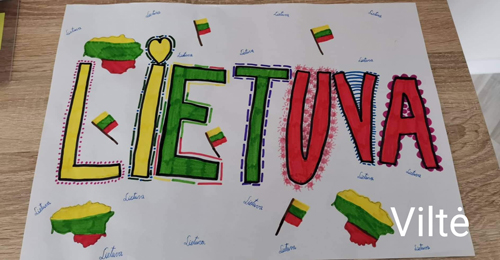 Lietuva Lietuva Lietuva
Lietuva
Lietuva Lietuva
LIETUVA
Lietuva
Lietuva Lietuva Lietuva
Lietuva
Viltė
Lietuva Lietuva Lietuva Lietuva